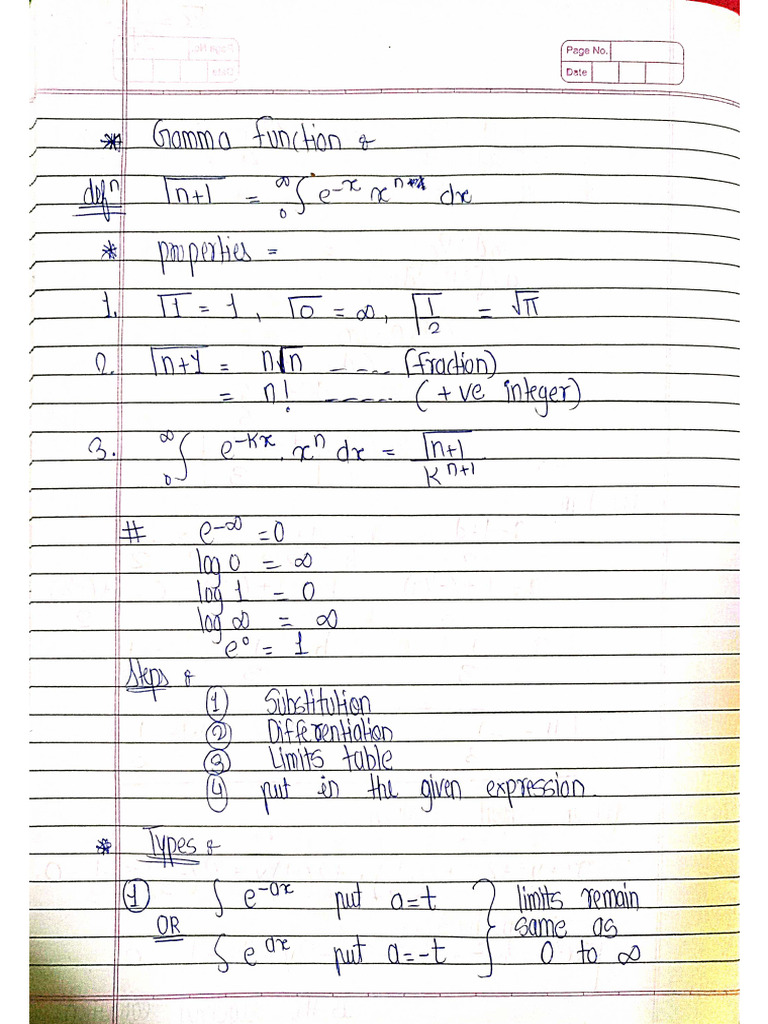 Page No.
Date
* Gamma function :
defⁿ Γn+1 = ₀∫^∞ e^-x x^n dx
* properties =
1. Γ1 = 1, Γ0 = ∞, Γ1/2 = √π
2. Γn+1 = nΓn ---- (fraction)
= n! ----- (+ve integer)
3. ₀∫^∞ e^-kx . x^n dx = Γn+1 / k^n+1
# e^-∞ = 0
log 0 = ∞
log 1 = 0
log ∞ = ∞
e^0 = 1
Steps :
① Substitution
② Differentiation
③ Limits table
④ put in the given expression.
* Types :
① ∫ e^-ax put a=t } limits remain
OR same as
∫ e^ax put a=-t 0 to ∞